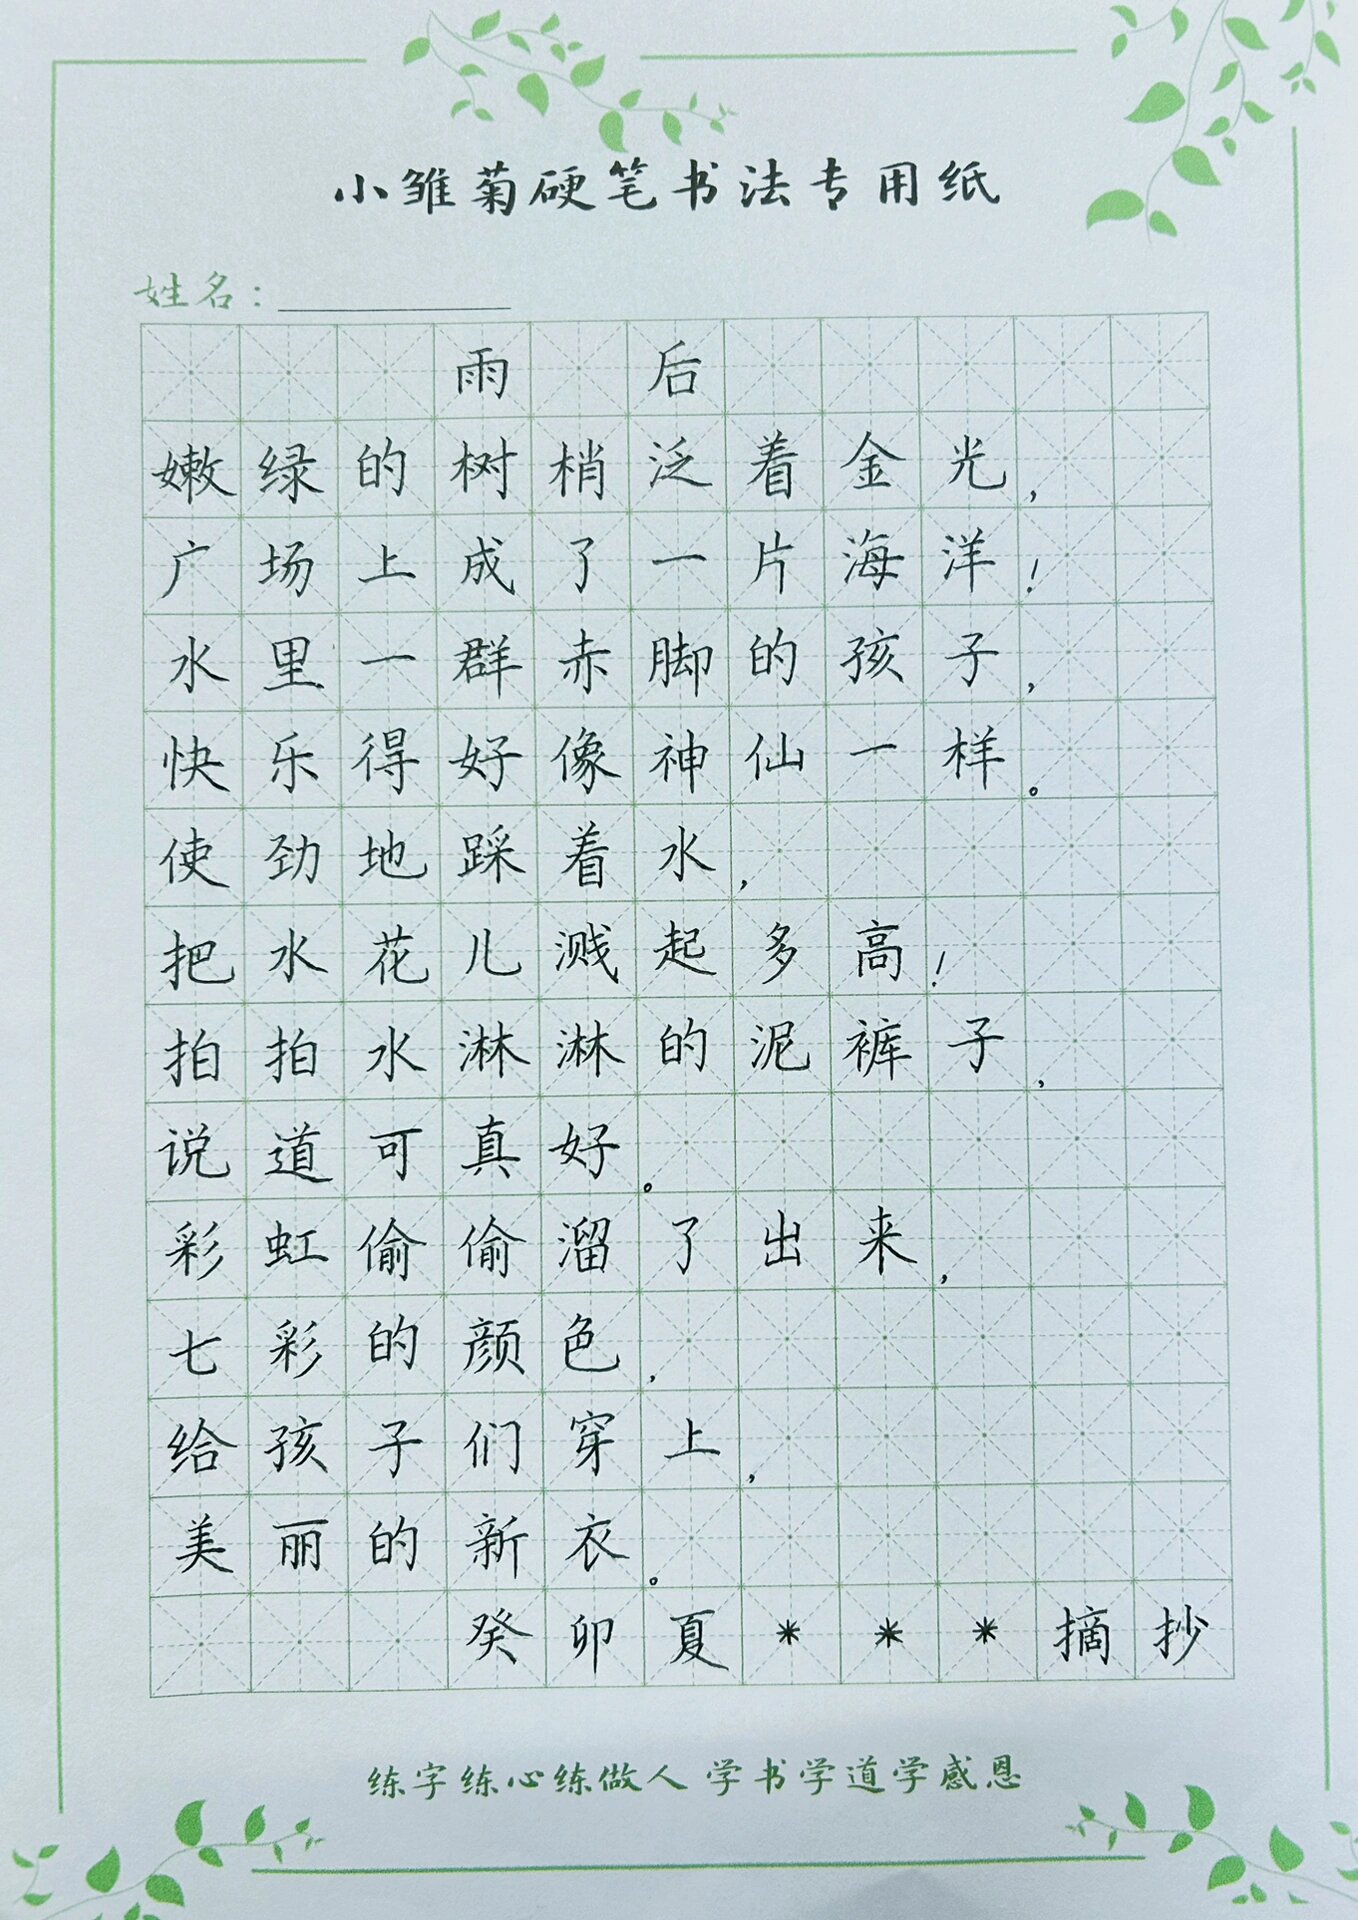 小雏菊硬笔书法专用纸
姓名:
雨后
嫩绿的树梢泛着金光,
广场上成了一片海洋!
水里一群赤脚的孩子,
快乐得好像神仙一样。
使劲地踩着水,
把水花儿溅起多高!
拍拍水淋淋的泥裤子,
说道可真好。
彩虹偷偷溜了出来,
七彩的颜色,
给孩子们穿上,
美丽的新衣。
癸卯夏***摘抄
练字练心练做人 学书学道学感恩